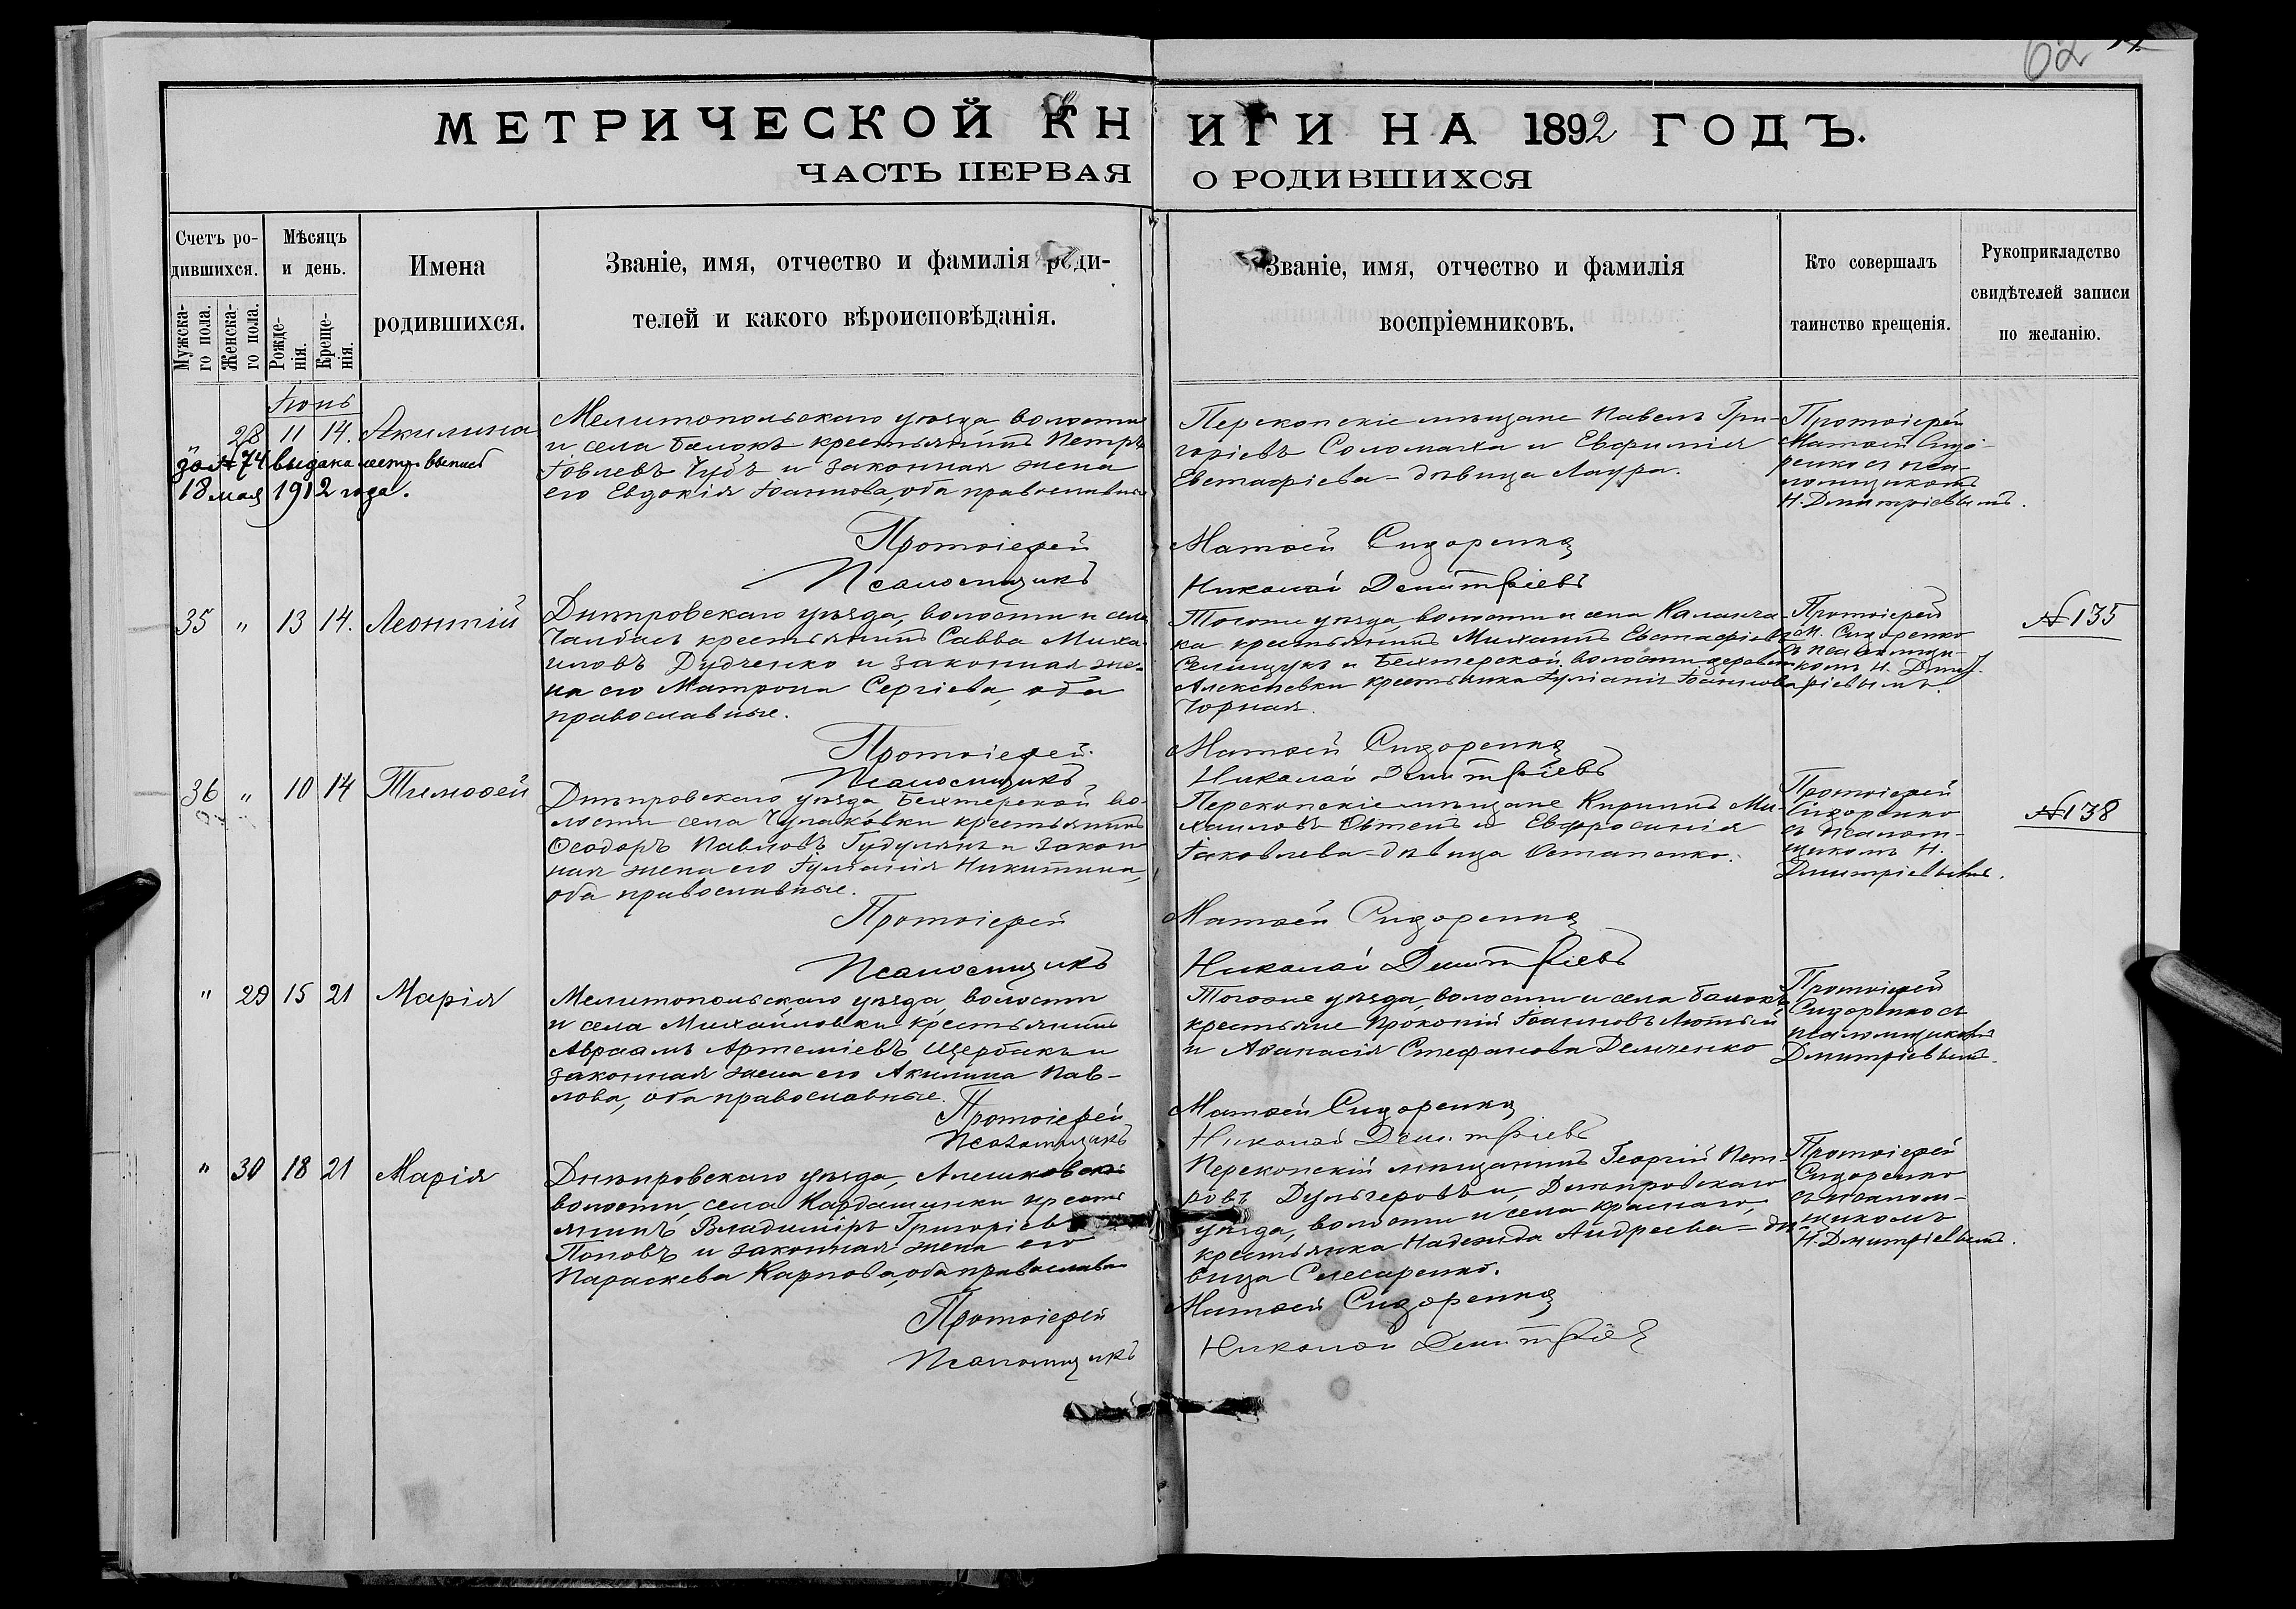 62
МЕТРИЧЕСКОЙ КНИГИ НА 1892 ГОДЪ.
ЧАСТЬ ПЕРВАЯ О РОДИВШИХСЯ
Счетъ ро-
дившихся.
Мужска-
го пола.
Женска-
го пола.
Мѣсяцъ
и день.
Рожде-
нія.
Креще-
нія.
Имена
родившихся.
Званіе, имя, отчество и фамилія роди-
телей и какого вѣроисповѣданія.
Званіе, имя, отчество и фамилія
воспріемниковъ.
Кто совершалъ
таинство крещенія.
Рукоприкладство
свидѣтелей записи
по желанію.
Іюнь
" 28 11 14. Акилина
за № 74 выдана метр. выпись
18 мая 1912 года.
Мелитопольскаго уѣзда волости
и села Балокъ крестьянинъ Петръ
Іовлевъ Чубъ и законная жена
его Евдокія Іоаннова, оба православные
Перекопскіе мѣщане Павелъ Гри-
горіевъ Соломаха и Евфимія
Евстафіева - дѣвица Лаура.
Протоіерей
Матѳей Сидо-
ренко съ пса-
ломщикомъ
Н. Дмитріевымъ.
Протоіерей Матѳей Сидоренко
Псаломщикъ Николай Дмитріевъ
35 " 13 14. Леонтій
Днѣпровскаго уѣзда, волости и села
Чалбасъ крестьянинъ Савва Миха-
иловъ Дудченко и законная же-
на его Матрона Сергіева, оба
православные.
Тогоже уѣзда, волости и села Каланча-
ка крестьянинъ Михаилъ Евстафіевъ
Селищукъ и Бехтерской волости деревни
Алексѣевки крестьянка Іуліанія Іоаннова
Чорная.
Протоіерей
М. Сидоренко
съ псаломщи-
комъ Н. Дмит-
ріевымъ.
№ 135
Протоіерей Матѳей Сидоренко
Псаломщикъ Николай Дмитріевъ
36 " 10 14 Тимоѳей
Днѣпровскаго уѣзда, Бехтерской во-
лости села Чулаковки крестьянинъ
Ѳеодоръ Павловъ Гудулянъ и закон-
ная жена его Іуліанія Никитина,
оба православные.
Перекопскіе мѣщане Кириллъ Ми-
хаиловъ и Евфросинія
Іаковлева - дѣвица Остапенко.
Протоіерей
Сидоренко
съ псалом-
щикомъ Н.
Дмитріевымъ.
№ 138
Протоіерей Матѳей Сидоренко
Псаломщикъ Николай Дмитріевъ
" 29 15 21 Марія
Мелитопольскаго уѣзда, волости
и села Михайловки крестьянинъ
Авраамъ Артеміевъ Щербакъ и
законная жена его Акилина Пав-
лова, оба православные.
Тогоже уѣзда, волости и села Балокъ
крестьяне Прокопій Іоанновъ Лютый
и Аѳанасія Стефанова Демченко
Протоіерей
Сидоренко съ
псаломщикомъ
Дмитріевымъ.
Протоіерей Матѳей Сидоренко
Псаломщикъ Николай Дмитріевъ
" 30 18 21 Марія
Днѣпровскаго уѣзда, Алешковской
волости, села Кардашинки кресть-
янинъ Владиміръ Григоріевъ
Поповъ и законная жена его
Параскева Карпова, оба православн.
Перекопскій мѣщанинъ Георгій Пет-
ровъ Дульгеровъ и, Днѣпровскаго
уѣзда, волости и села Краснаго,
крестьянка Надежда Андреева - дѣ-
вица Слесаренко.
Протоіерей
Сидоренко
съ псалом-
щикомъ
Н. Дмитріевымъ.
Протоіерей Матѳей Сидоренко
Псаломщикъ Николай Дмитріевъ